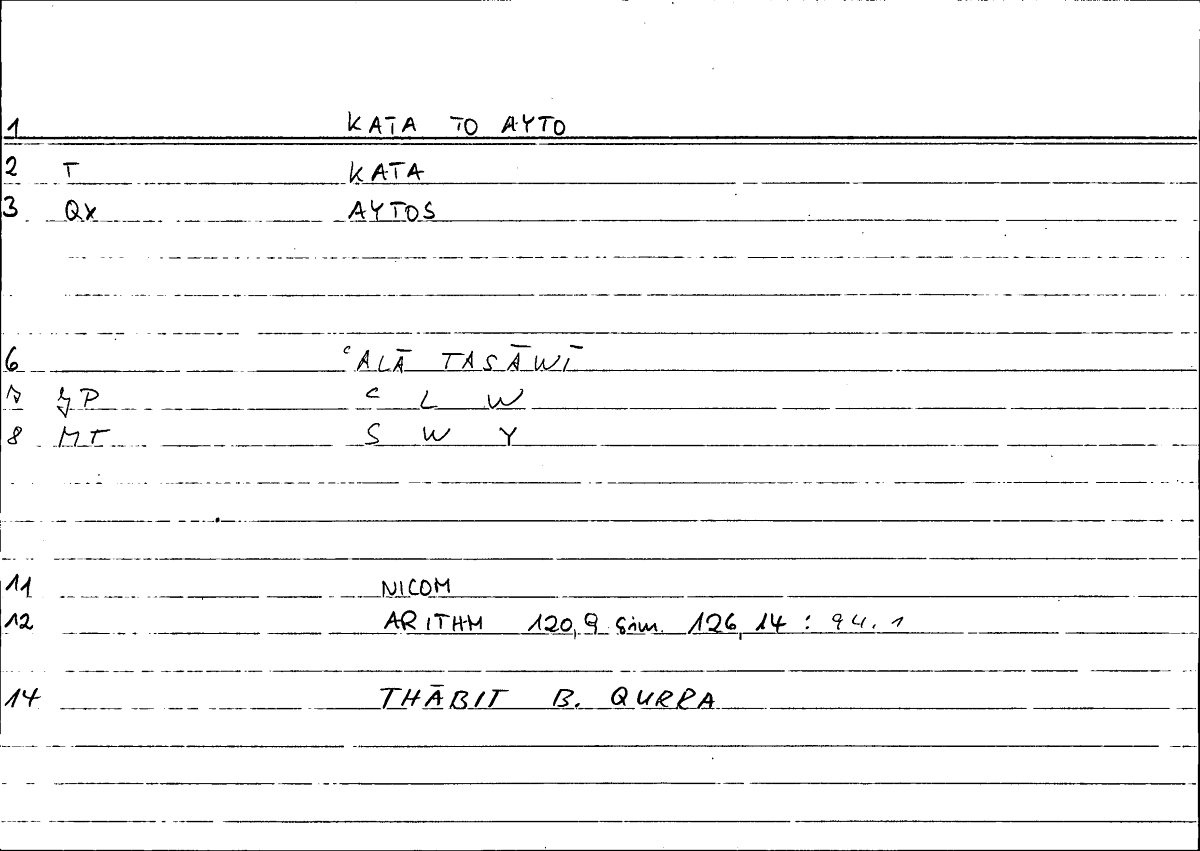 1 KATA TO AYTO
2 T KATA
3 Qx AYTOS
6 ʿALĀ TASĀWĪ
7 P ʿ L W
8 MT S W Y
11 NICOM
12 ARITHM 120,9 sim. 126,14 : 94.1
14 THĀBIT B. QURRA